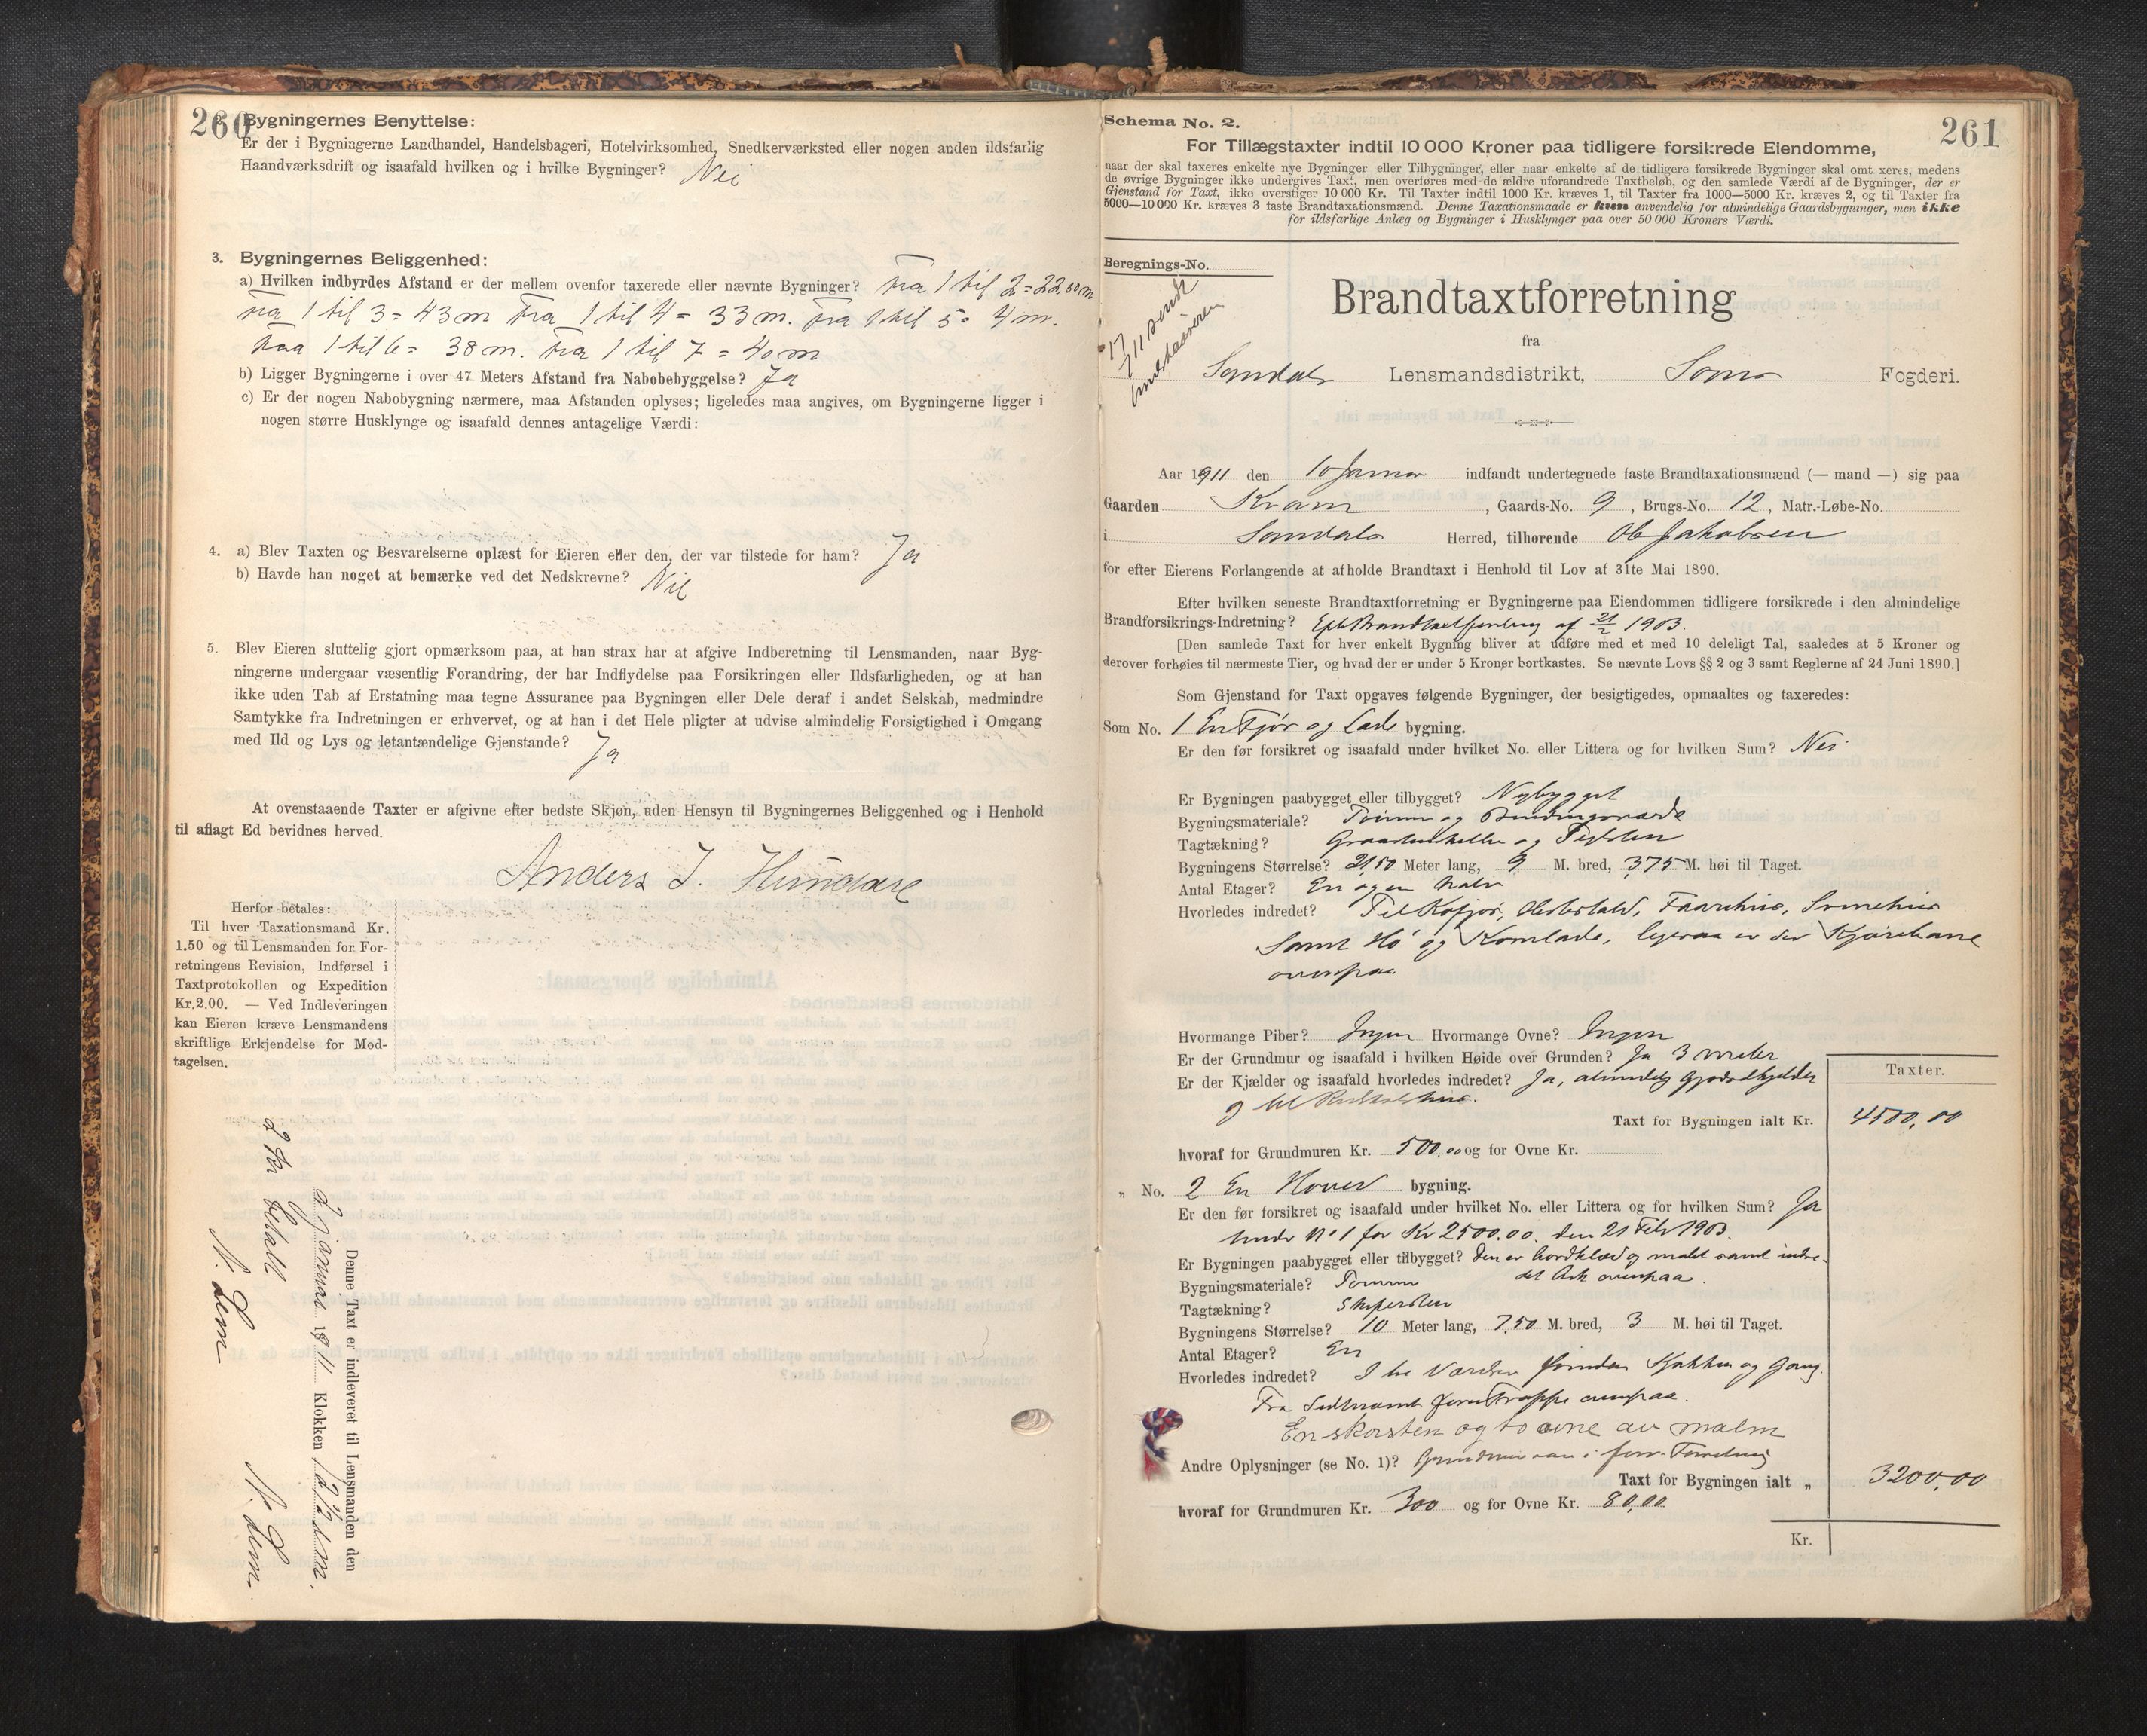 260
Bygningernes Benyttelse:
Er der i Bygningerne Landhandel, Handelsbageri, Hotelvirksomhed, Snedkerværksted eller nogen anden ildsfarlig
Haandværksdrift og isaafald hvilken og i hvilke Bygninger? Nei
3. Bygningernes Beliggenhed:
a) Hvilken indbyrdes Afstand er der mellem ovenfor taxerede eller nævnte Bygninger? Fra 1 til 2 = 22,50 m
Fra 1 til 3 = 43 m Fra 1 til 4 = 33 m. Fra 1 til 5 = 4 m.
Fra 1 til 6 = 38 m. Fra 1 til 7 = 40 m
b) Ligger Bygningerne i over 47 Meters Afstand fra Nabobebyggelse? Ja
c) Er der nogen Nabobygning nærmere, maa Afstanden oplyses; ligeledes maa angives, om Bygningerne ligger i
nogen større Husklynge og isaafald dennes antagelige Værdi:
4. a) Blev Taxten og Besvarelserne oplæst for Eieren eller den, der var tilstede for ham? Ja
b) Havde han noget at bemærke ved det Nedskrevne? Nei
5. Blev Eieren sluttelig gjort opmærksom paa, at han strax har at afgive Indberetning til Lensmanden, naar Byg-
ningerne undergaar væsentlig Forandring, der har Indflydelse paa Forsikringen eller Ildsfarligheden, og at han
ikke uden Tab af Erstatning maa tegne Assurance paa Bygningen eller Dele deraf i andet Selskab, medmindre
Samtykke fra Indretningen er erhvervet, og at han i det Hele pligter at udvise almindelig Forsigtighed i Omgang
med Ild og Lys og letantændelige Gjenstande? Ja
At ovenstaaende Taxter er afgivne efter bedste Skjøn, uden Hensyn til Bygningernes Beliggenhed og i Henhold
til aflagt Ed bevidnes herved.
Anders J. Hundere
Herfor betales:
Til hver Taxationsmand Kr.
1.50 og til Lensmanden for For-
retningens Revision, Indførsel i
Taxtprotokollen og Expedition
Kr. 2.00. — Ved Indleveringen
kan Eieren kræve Lensmandens
skriftlige Erkjendelse for Mod-
tagelsen.
Denne Taxt er indleveret til Lensmanden den
januar 1911 Klokken
N. Lem.
2 Kr betalt
N. Lem
Schema No. 2.
261
For Tillægstaxter indtil 10 000 Kroner paa tidligere forsikrede Eiendomme,
naar der skal taxeres enkelte nye Bygninger eller Tilbygninger, eller naar enkelte af de tidligere forsikrede Bygninger skal omtaxeres, medens
de øvrige Bygninger ikke undergives Taxt, men overføres med de ældre uforandrede Taxtbeløb, og den samlede Værdi af de Bygninger, der er
Gjenstand for Taxt, ikke overstiger 10 000 Kr. Til Taxter indtil 1000 Kr. kræves 1, til Taxter fra 1000—5000 Kr. kræves 2, og til Taxter fra
5000—10 000 Kr. kræves 3 faste Brandtaxationsmænd. Denne Taxationsmaade er kun anvendelig for almindelige Gaardsbygninger, men ikke
for ildsfarlige Anlæg og Bygninger i Husklynger paa over 50 000 Kroners Værdi.
Beregnings-No.
Brandtaxtforretning
fra
Lensmandsdistrikt, Fogderi.
Aar 1911 den 10 Januar indfandt undertegnede faste Brandtaxationsmænd (— mand —) sig paa
Gaarden Kram, Gaards-No. 9, Brugs-No. 12, Matr.-Løbe-No.
i Herred, tilhørende Ole Jakobsen
for efter Eierens Forlangende at afholde Brandtaxt i Henhold til Lov af 31te Mai 1890.
Efter hvilken seneste Brandtaxtforretning er Bygningerne paa Eiendommen tidligere forsikrede i den almindelige
Brandforsikrings-Indretning? Efter Brandtaxtforretning af 21/2 1903.
[Den samlede Taxt for hver enkelt Bygning bliver at udføre med et med 10 deleligt Tal, saaledes at 5 Kroner og
derover forhøies til nærmeste Tier, og hvad der er under 5 Kroner bortkastes. Se nævnte Lovs §§ 2 og 3 samt Reglerne af 24 Juni 1890.]
Som Gjenstand for Taxt opgaves følgende Bygninger, der besigtigedes, opmaaltes og taxeredes:
Som No. 1 En Fjøs og Lade bygning.
Er den før forsikret og isaafald under hvilket No. eller Littera og for hvilken Sum? Nei
Er Bygningen paabygget eller tilbygget? Nybygget
Bygningsmateriale? Tømmer og Bindingsværk
Tagtækning? Graastenheller og Teglsten
Bygningens Størrelse? 21,50 Meter lang, 9 M. bred, 3,75 M. høi til Taget.
Antal Etager? En og en halv
Hvorledes indredet? Til Kofjøs, Hestestald, Faarehus, Svinehus
samt Hø og Kornlade, ligesaa er der Kjørebane
ovenpaa
Hvormange Piber? Ingen Hvormange Ovne? Ingen
Er der Grundmur og isaafald i hvilken Høide over Grunden? Ja 3 meter
Er der Kjælder og isaafald hvorledes indredet? Ja, almindelig Gjødselkjelder
og til
Taxter.
Taxt for Bygningen ialt Kr. 4500,00
hvoraf for Grundmuren Kr. 500,00 og for Ovne Kr.
„ No. 2 En Hoved bygning.
Er den før forsikret og isaafald under hvilket No. eller Littera og for hvilken Sum? Ja
under No 1 for Kr 2500,00. den 21 Feb 1903.
Er Bygningen paabygget eller tilbygget? Den er bordklæd og malet samt indre-
det Ark ovenpaa.
Bygningsmateriale? Tømmer
Tagtækning? Skifersten
Bygningens Størrelse? 10 Meter lang, 7,50 M. bred, 3 M. høi til Taget.
Antal Etager? En
Hvorledes indredet? I to Værelser foruden Kjøkken og Gang.
Trappe ovenpaa.
En skorsten og to ovne av malm
Andre Oplysninger (se No. 1)? Grundmur som i forr. Forretning
Taxt for Bygningen ialt „ 3200,00
hvoraf for Grundmuren Kr. 300 og for Ovne Kr. 80,00
Kr.